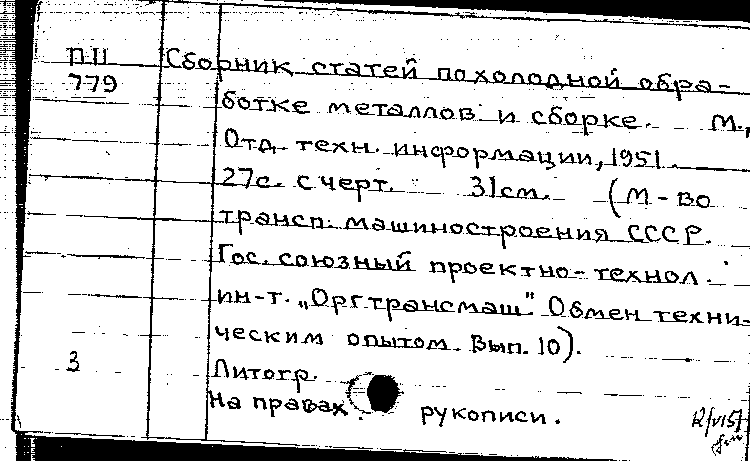 ПII Сборник статей по холодной обра-
779
ботке металлов и сборке. М.,
Отд. техн. информации, 1951.
27с. с черт. 31см. (М-во
трансп. машиностроения СССР.
Гос. союзный проектно-технол.
ин-т. „Оргтрансмаш". Обмен техни-
ческим опытом. Вып. 10).
3
Литогр.
На правах рукописи.